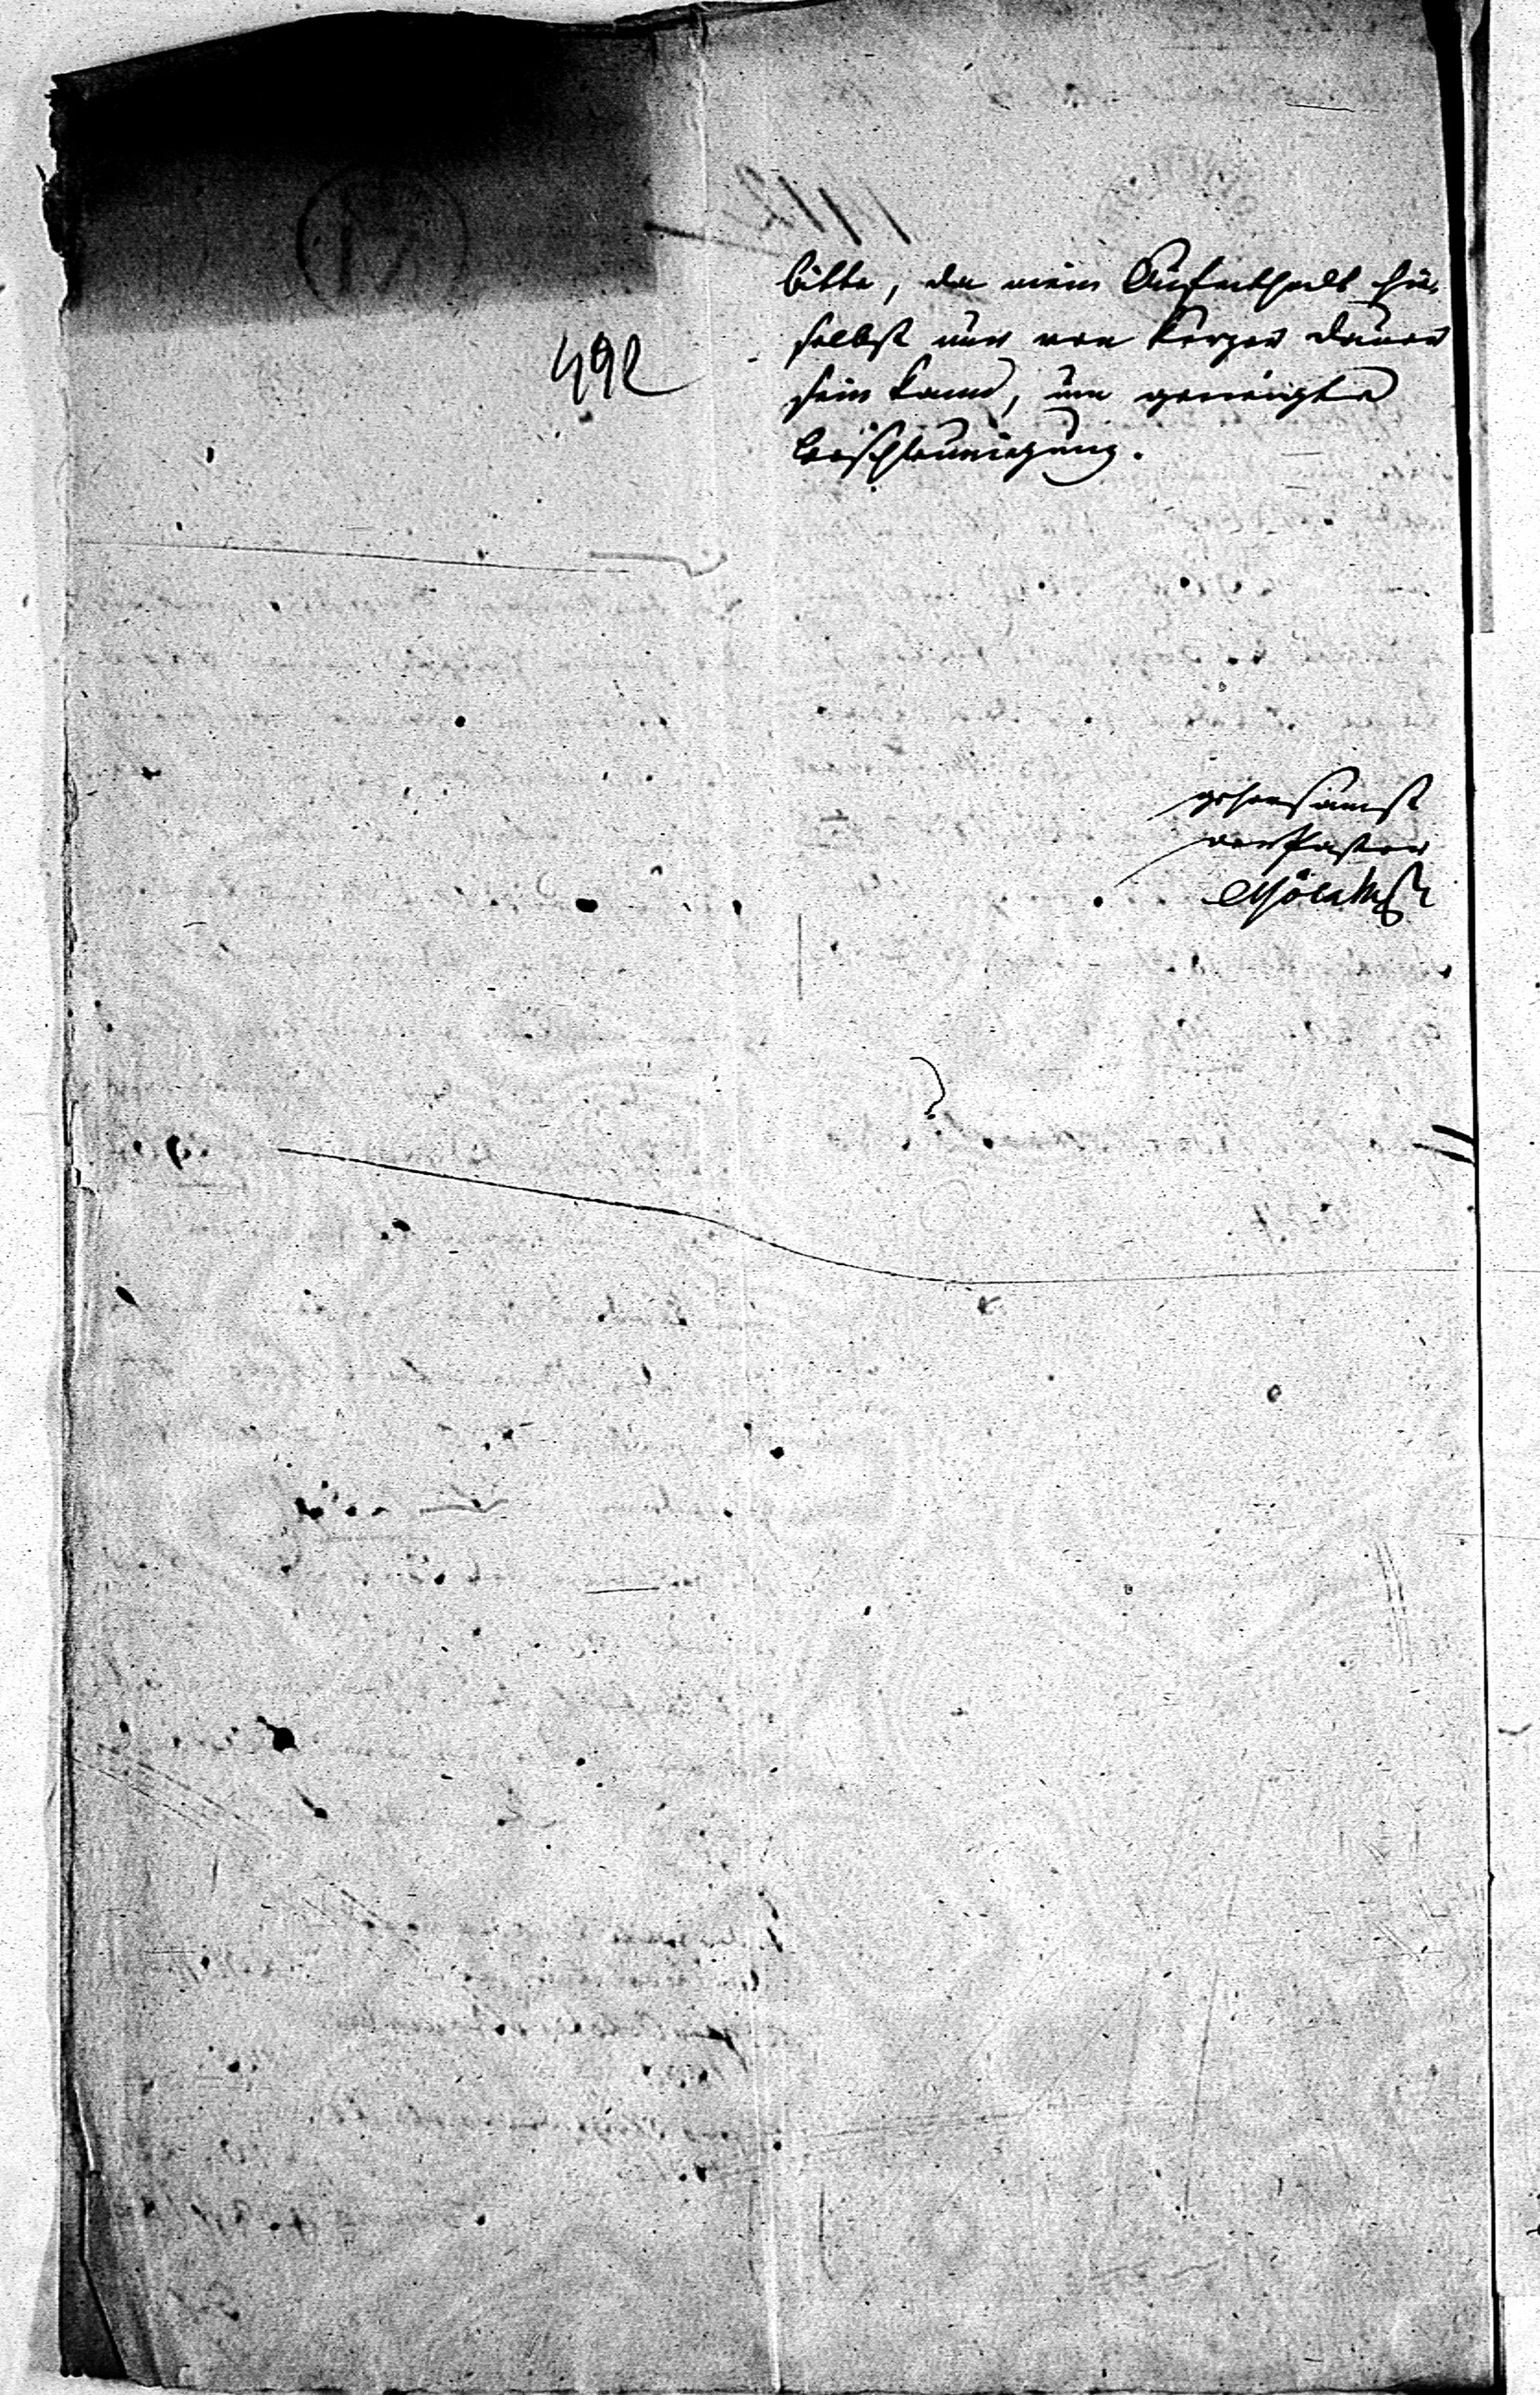 492
bitte, da mein Aufenthalt hie-
selbst nur von kurzer Dauer
sein kann, um geneigte
Beschleunigung.
gehorsamst
der Pastor